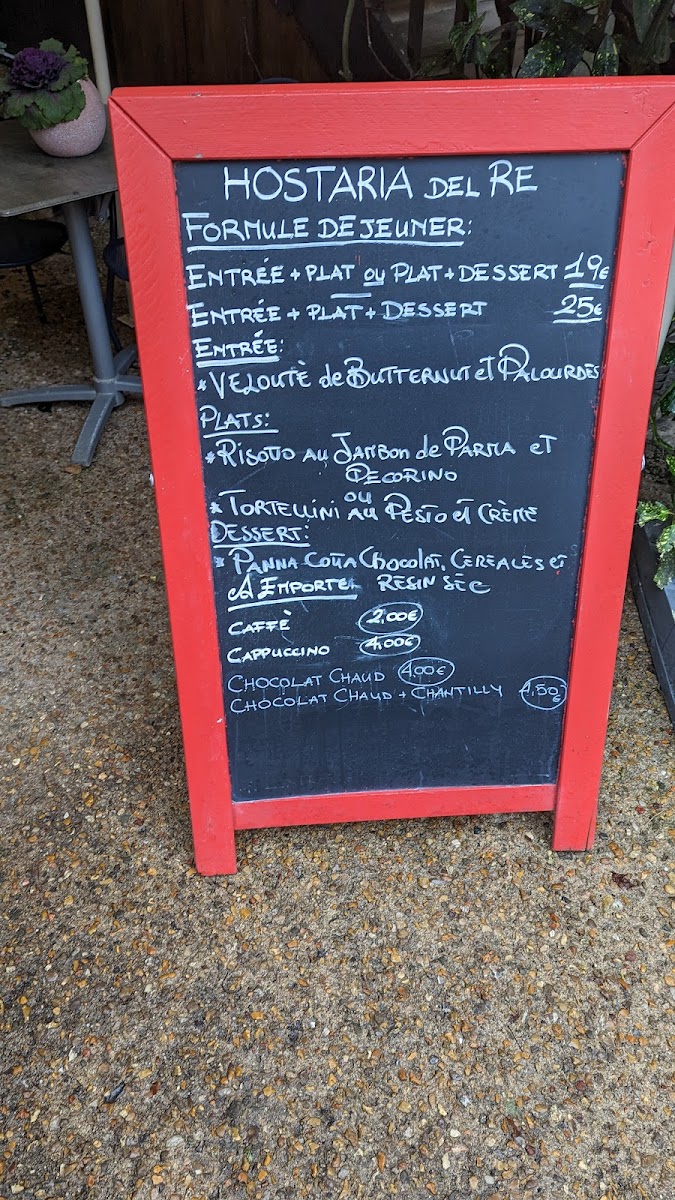 HOSTARIA DEL RE
FORMULE DEJEUNER:
ENTRÉE + PLAT OU PLAT + DESSERT 19€
ENTRÉE + PLAT + DESSERT 25€
ENTRÉE:
* VELOUTÈ de BUTTERNUT et PALOURDES
PLATS:
* RISOTTO AU JAMBON de PARMA ET
PECORINO
OU
* TORTELLINI AU PESTO et CRÈME
DESSERT:
* PANNA COTTA CHOCOLAT, CEREALES et
RESIN SÉC
A EMPORTER
CAFFÈ 2,00€
CAPPUCCINO 4,00€
CHOCOLAT CHAUD 4,00€
CHOCOLAT CHAUD + CHANTILLY 4,50€